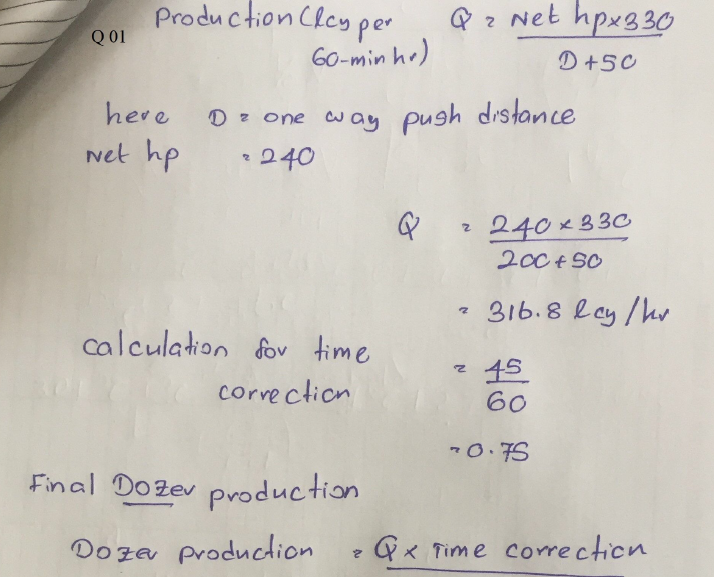 Q 01
Production (lcy per Q = Net hp×330
60-min hr) D+50
here D = one way push distance
Net hp = 240
Q = 240 × 330
200+50
= 316.8 lcy/hr
calculation for time = 45
correction 60
=0.75
Final Dozer production
Dozer production = Q× Time correction